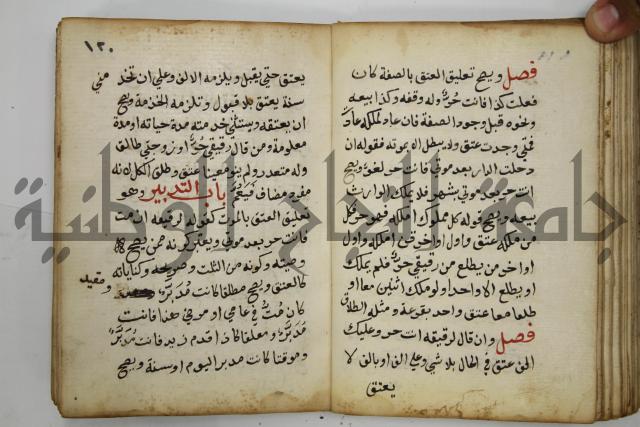 فصل ويصح تعليق العتق بالصفة كان
فعلت كذا فانت حر وله وقفه وكذا بيعه
ونحوه قبل وجود الصفة فان عاد لملكه عادت
فمتى وجدت عتق ولا يبطل الا بموته فقوله ان
دخلت الدار بعد موتي فانت حر لغو ويصح
انت حر بعد موتي بشهر فلا يملك الوارث
بيعه ويصح قوله كل مملوك املكه فهو حر فكل
من ملكه عتق واول او اخر قن املكه واول
او اخر من يطلع من رقيقي حر فلم يملك
او يطلع الا واحد او لو ملك اثنين معا او
طلعا معا عتق واحد بقرعة ومثله الطلاق
فصل وان قال لرقيقه انت حر وعليك
الف عتق في الحال بلا شيء وعلى الف او بالف لا
يعتق
١٢٠
يعتق حتى يقبل ويلزمه الالف وعلى ان تخدمني
سنة يعتق بلا قبول وتلزمه الخدمة ويصح
ان يعتقه ويستثني خدمته مدة حياته او مدة
معلومة ومن قال رقيقي حر او زوجتي طالق
وله متعدد ولم ينو معينا عتق وطلق الكل لانه
مفرد مضاف فيعم باب التدبير وهو
تعليق العتق بالموت كقوله لرقيقه ان مت
فانت حر بعد موتي ويعتبر كونه ممن تصح
وصيته وكونه من الثلث وصريحه وكناياته
كالعتق ويصح مطلقا كانت مدبر ومقيد
كان مت في عامي او مرضي هذا فانت
مدبر ومعلقا كاذا قدم زيد فانت مدبر
وموقتا كانت مدبر اليوم او سنة ويصح
جامعة النجاح الوطنية